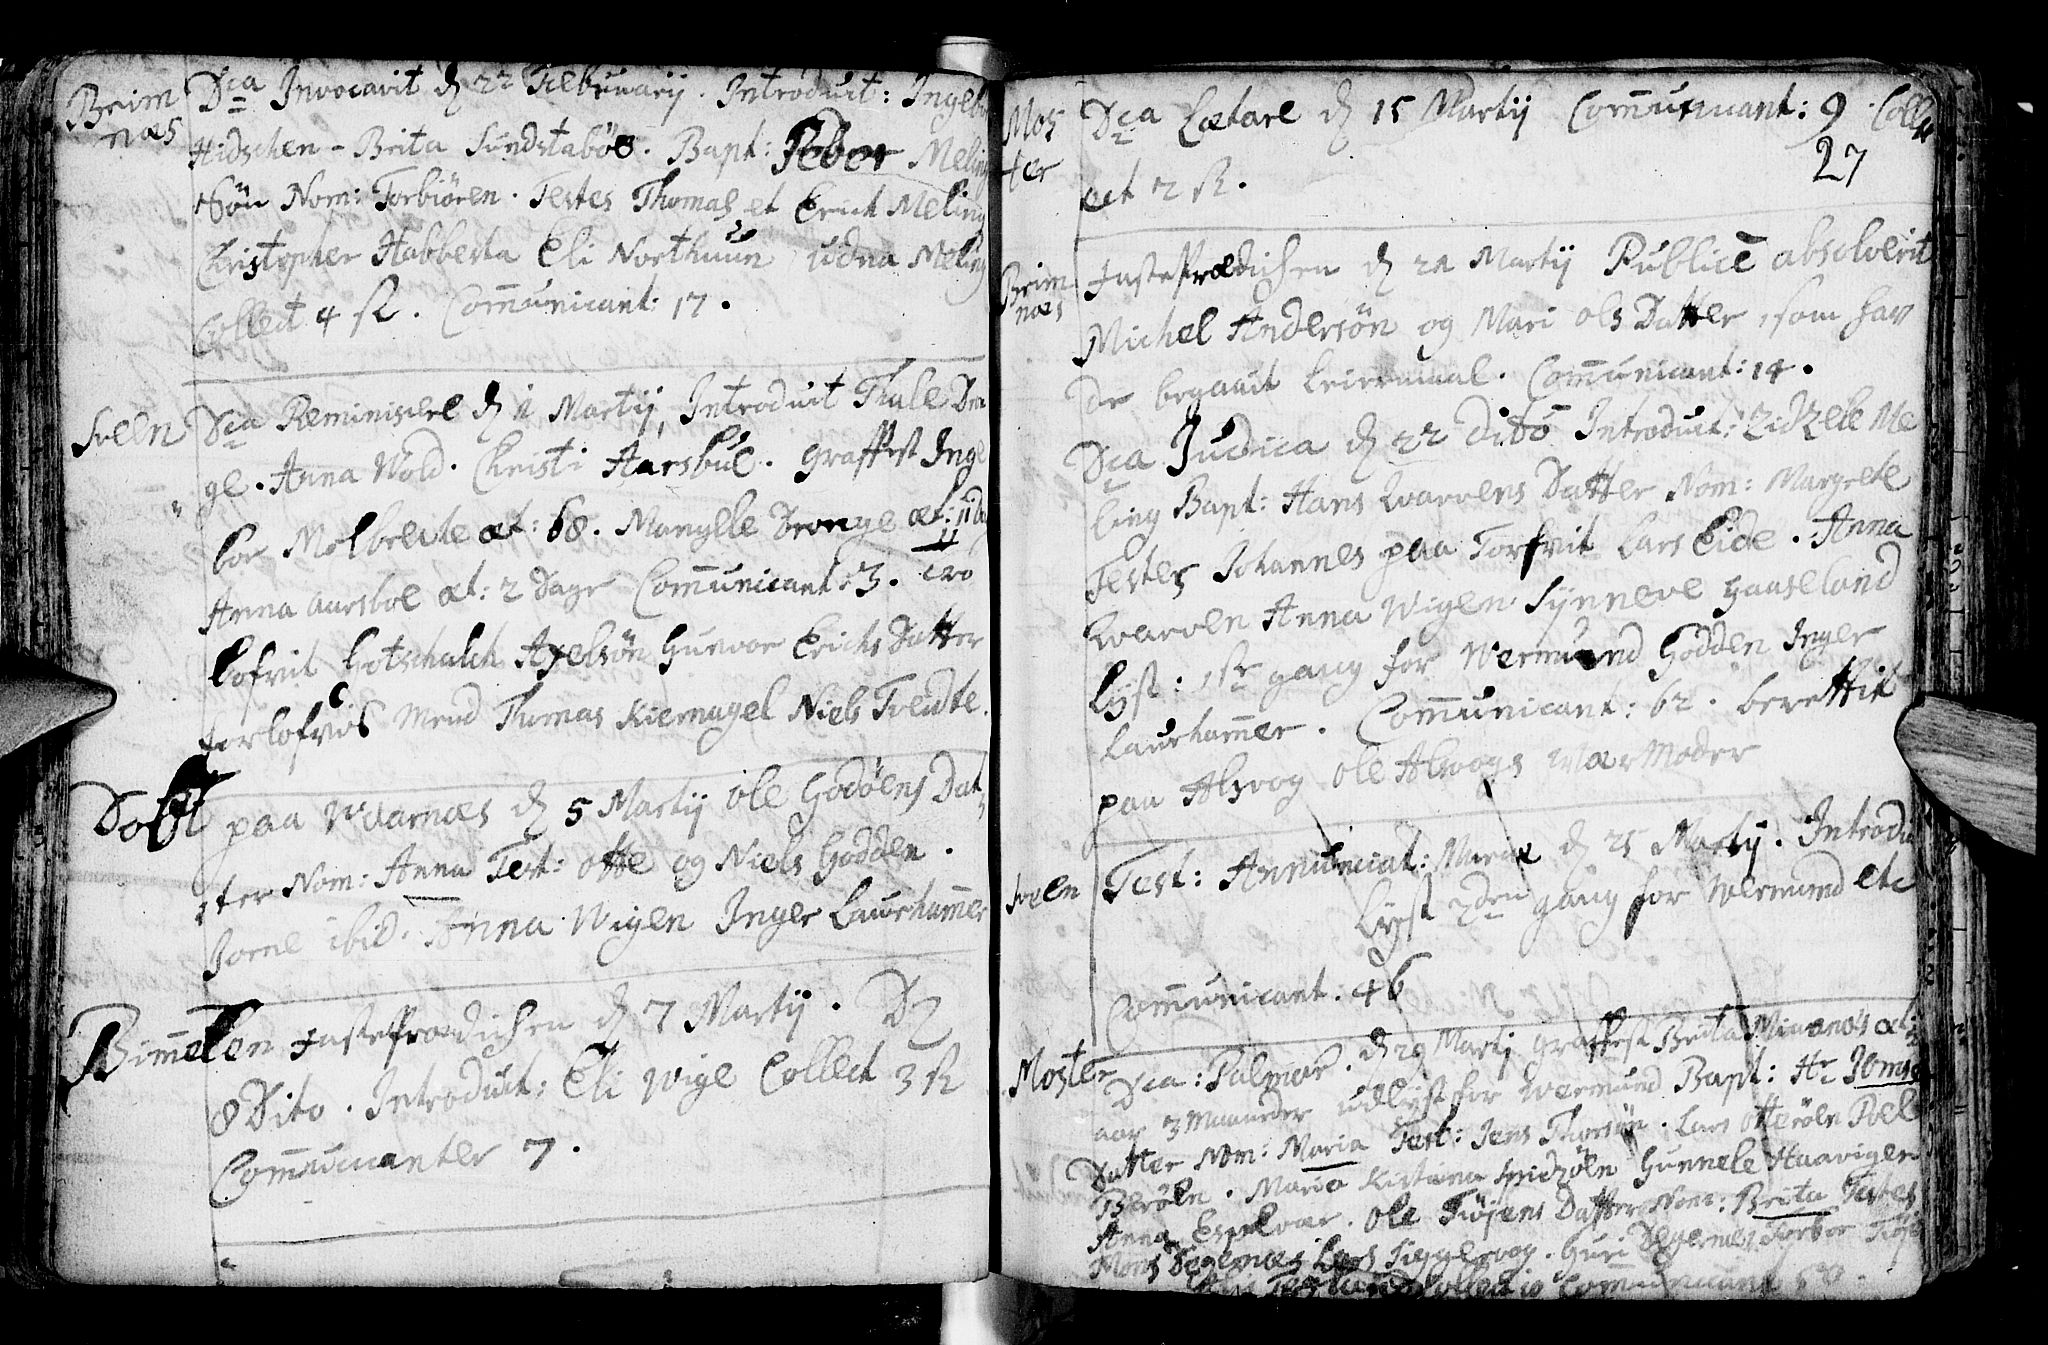 Brim
næs
Dca Invocavit d 22 Februarij. Introduct: Ingeb
Hidschen - Brita Sundstabøe. Bapt: Peder Meling
Søn Nom: Torbiören. Testes Thomas et Erich Meling
Christopher Habbesta Eli Northuun Udna Meling
Collect 4 ß. Communicant: 17.
Sveen
Dca Reminiscere d 1 Martij, Introduit Thule Dren
ge. Anna Wold. Christi Aarsbue. Graffest Inge
bor Mølbreite æt: 68. Mangelle Drenge æt: 11 da
Anna Aarsboe æt: 2 Dage Communicant: 3. tro
lofvit Gotschalch Axelsøn Gunvor Erichs Datter
forlofvs Mend Thomas Kiernagel Niels Tvedte.
Døbt paa Waarnæs d 5 Martij Ole Godøens Dat
ter Nom: Anna Test: Otte og Niels Godøen.
Jorne ibid: Anna Wigen Inger Laurhammer
Bimmelen FastePrædichen d 7 Martij. D
8 Dito. Introduct: Eli Wige Collect 3 ß
Communicanter 7.
Mos
ter
Dca Lætare d 15 Martij Communicant: 9. Coll
27
ect 2 ß.
Brim
næs
FastePrædichen d 21 Martij Publicè absolverit
Michel Andersøn og Mari Ols Datter, som hav
De begaait Leiermaal. Communicant: 14.
Dca Judica d 22 Dito Introduct: Zidzele Me
ling Bapt: Hans Kvarvens Datter Nom: Margrete
Testes Johannes paa Torfvit Lars Eide. Anna
Kvarven Anna Wigen Synneve Haaseland
Lyst: 1ste gang for Wermund Godøen Inger
Laurhammer. Communicant: 62. berettit
paa Alsvog Ole Alsvogs Wær Moder
Sveen
Fest: Annunciat: Mariæ d 25 Martij. Introdu
Lyst 2den gang for Wermund etc
Communicant. 46
Moster
Dca: Palmar. d 29 Martij Graffest Brita æt:
aar 3 Maaneder udlyst for Wermund Bapt: Hr Jens
Datter Nom: Maria Test: Jens Thorsøn. Lars Otterøen Poel
Berøen. Maria Kistiena Spidzøen Gunnele Haavigen
Anna Espevær. Ole Tiøjens Datter Nom: Brita Testes
Mons Degernæs Lars Siggervog. Guri Degernes Torbor
Collect 10 Communicant 50.